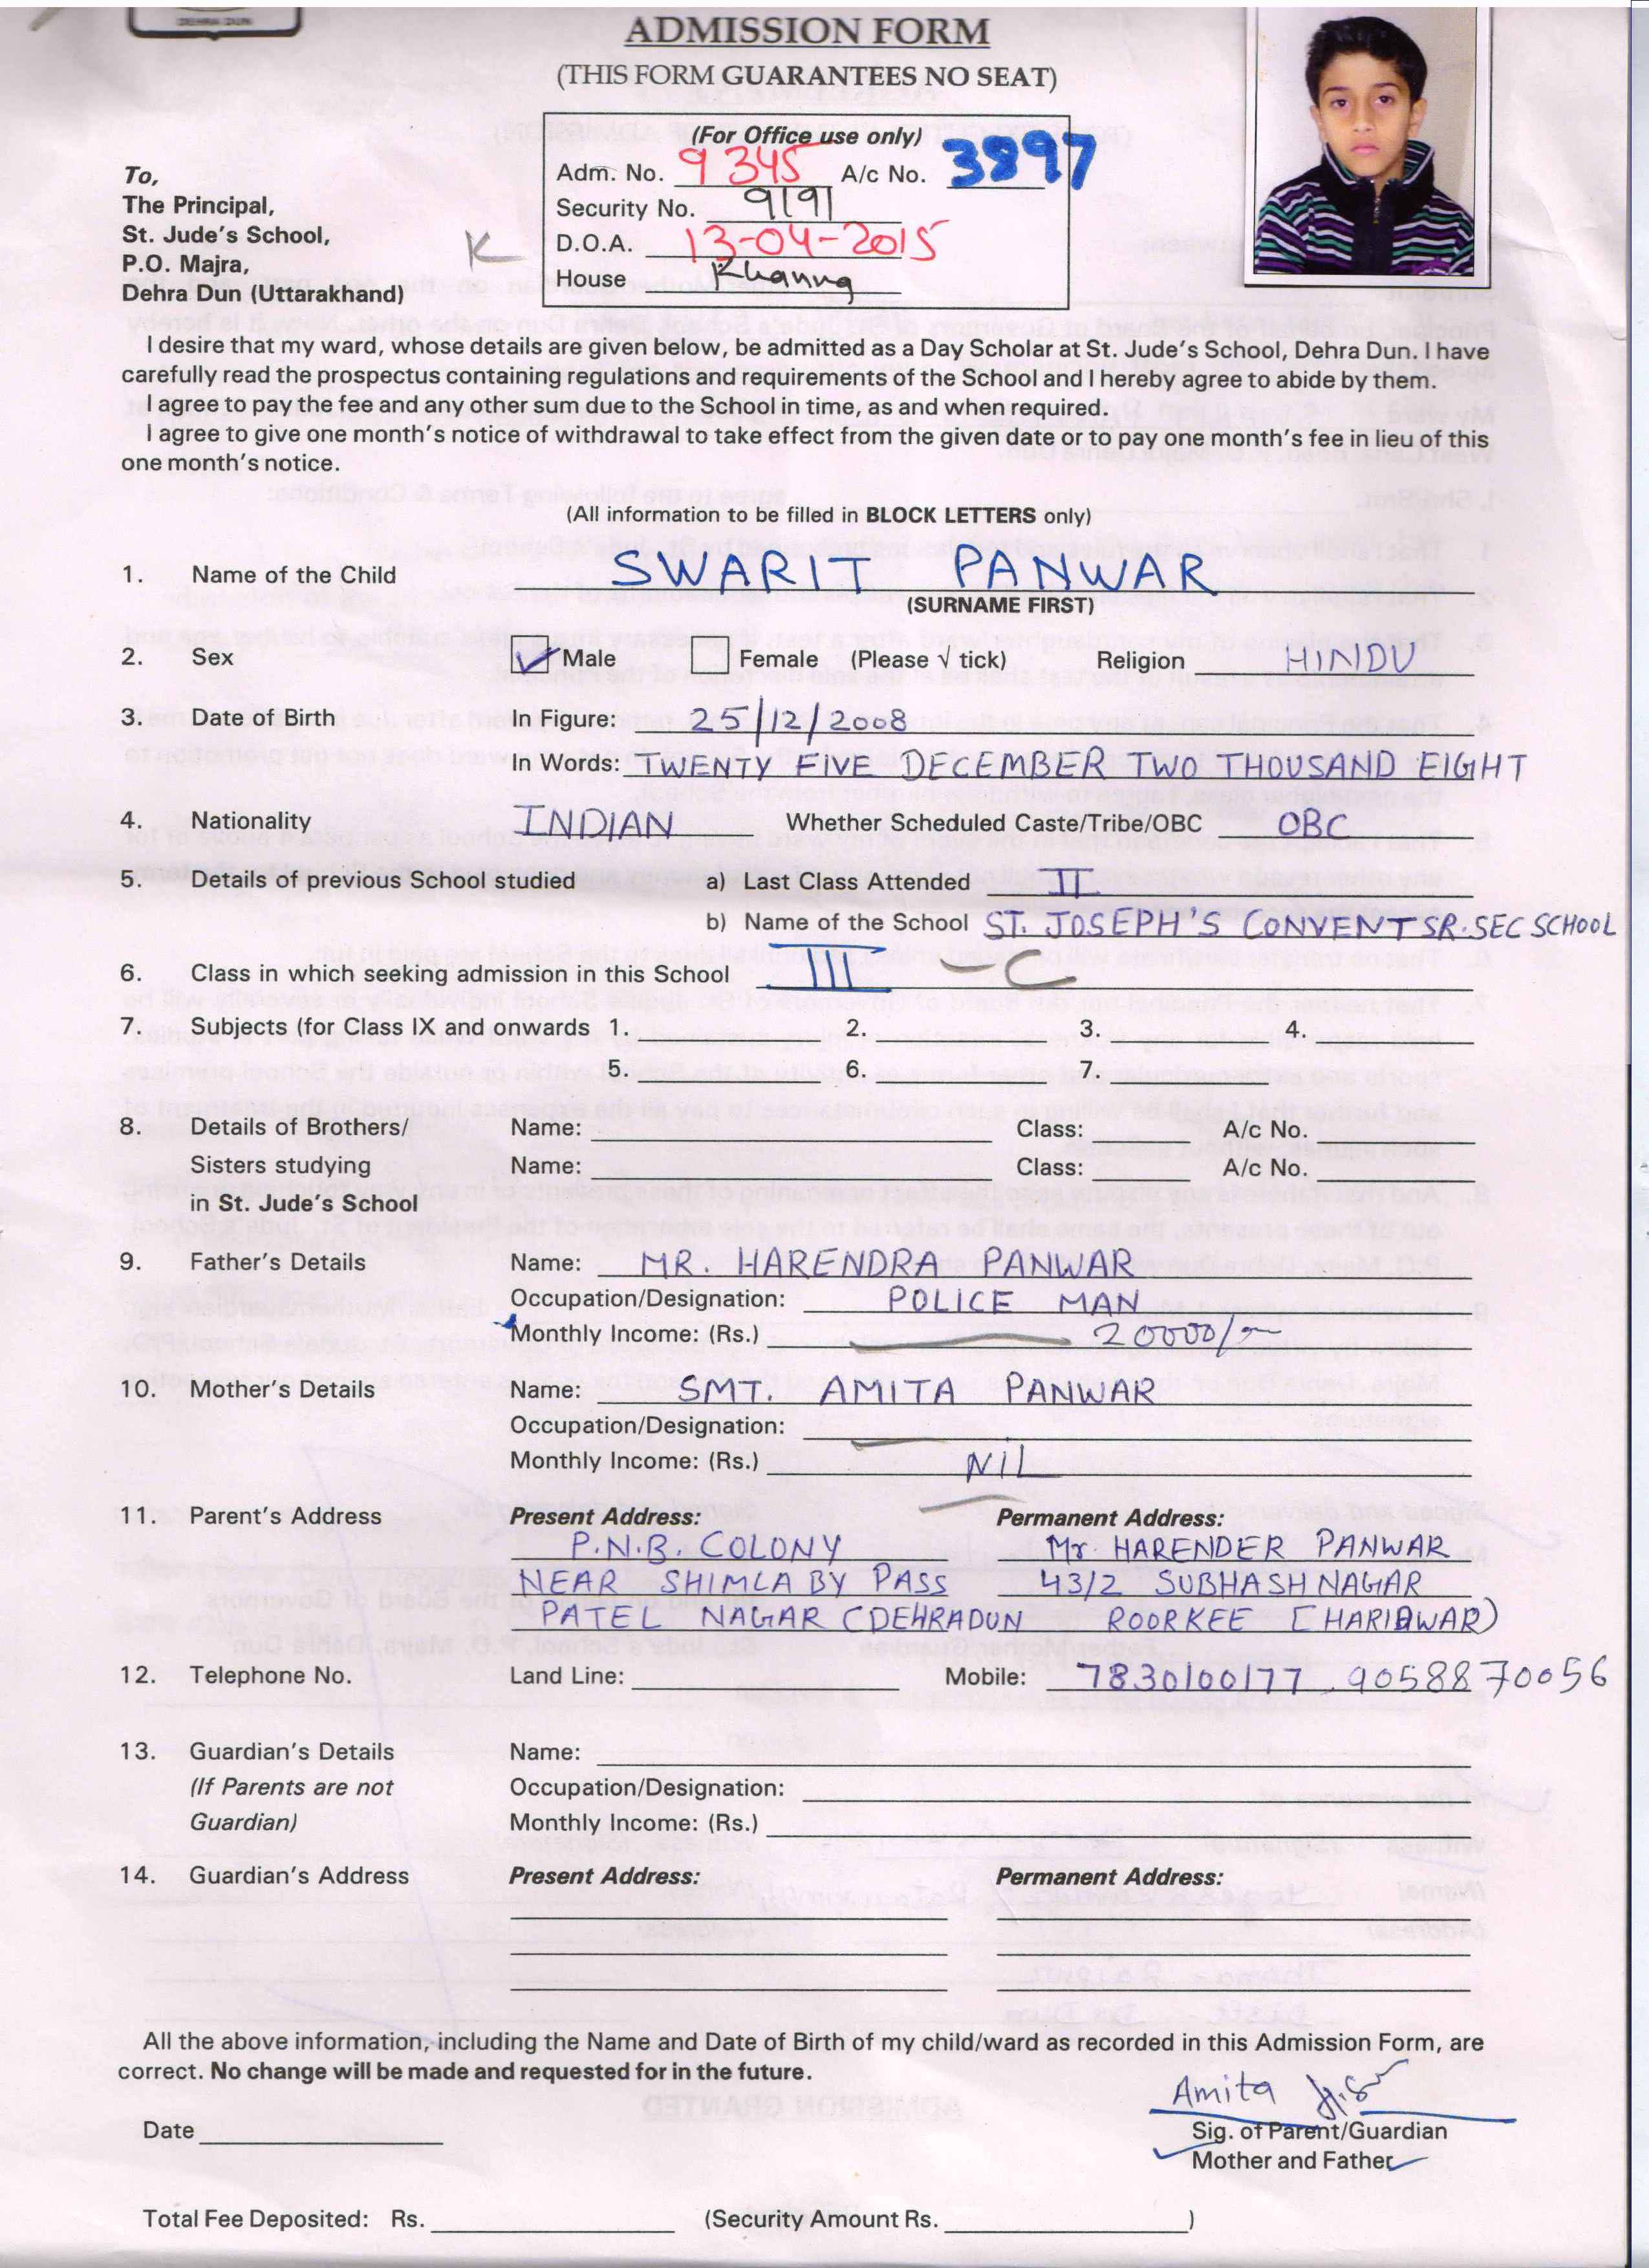 DEHRA DUN
ADMISSION FORM
(THIS FORM GUARANTEES NO SEAT)
(For Office use only)
Adm. No. 9345 A/c No. 3897
Security No. 9191
D.O.A. 13-04-2015
House Khanna
K
To,
The Principal,
St. Jude's School,
P.O. Majra,
Dehra Dun (Uttarakhand)
I desire that my ward, whose details are given below, be admitted as a Day Scholar at St. Jude's School, Dehra Dun. I have
carefully read the prospectus containing regulations and requirements of the School and I hereby agree to abide by them.
I agree to pay the fee and any other sum due to the School in time, as and when required.
I agree to give one month's notice of withdrawal to take effect from the given date or to pay one month's fee in lieu of this
one month's notice.
(All information to be filled in BLOCK LETTERS only)
1. Name of the Child SWARIT PANWAR
(SURNAME FIRST)
2. Sex Male Female (Please √ tick) Religion HINDU
3. Date of Birth In Figure: 25/12/2008
In Words: TWENTY FIVE DECEMBER TWO THOUSAND EIGHT
4. Nationality INDIAN Whether Scheduled Caste/Tribe/OBC OBC
5. Details of previous School studied a) Last Class Attended II
b) Name of the School ST. JOSEPH'S CONVENT SR. SEC SCHOOL
6. Class in which seeking admission in this School III - C
7. Subjects (for Class IX and onwards 1. 2. 3. 4.
5. 6. 7.
8. Details of Brothers/ Name: Class: A/c No.
Sisters studying Name: Class: A/c No.
in St. Jude's School
9. Father's Details Name: MR. HARENDRA PANWAR
Occupation/Designation: POLICE MAN
Monthly Income: (Rs.) 20000/-
10. Mother's Details Name: SMT. AMITA PANWAR
Occupation/Designation:
Monthly Income: (Rs.) NIL
11. Parent's Address Present Address: Permanent Address:
P.N.B. COLONY Mr. HARENDER PANWAR
NEAR SHIMLA BY PASS 43/2 SUBHASH NAGAR
PATEL NAGAR (DEHRADUN ROORKEE (HARIDWAR)
12. Telephone No. Land Line: Mobile: 7830100177, 9058870056
13. Guardian's Details Name:
(If Parents are not Occupation/Designation:
Guardian) Monthly Income: (Rs.)
14. Guardian's Address Present Address: Permanent Address:
All the above information, including the Name and Date of Birth of my child/ward as recorded in this Admission Form, are
correct. No change will be made and requested for in the future.
Amita
Date Sig. of Parent/Guardian
Mother and Father
Total Fee Deposited: Rs. (Security Amount Rs. )